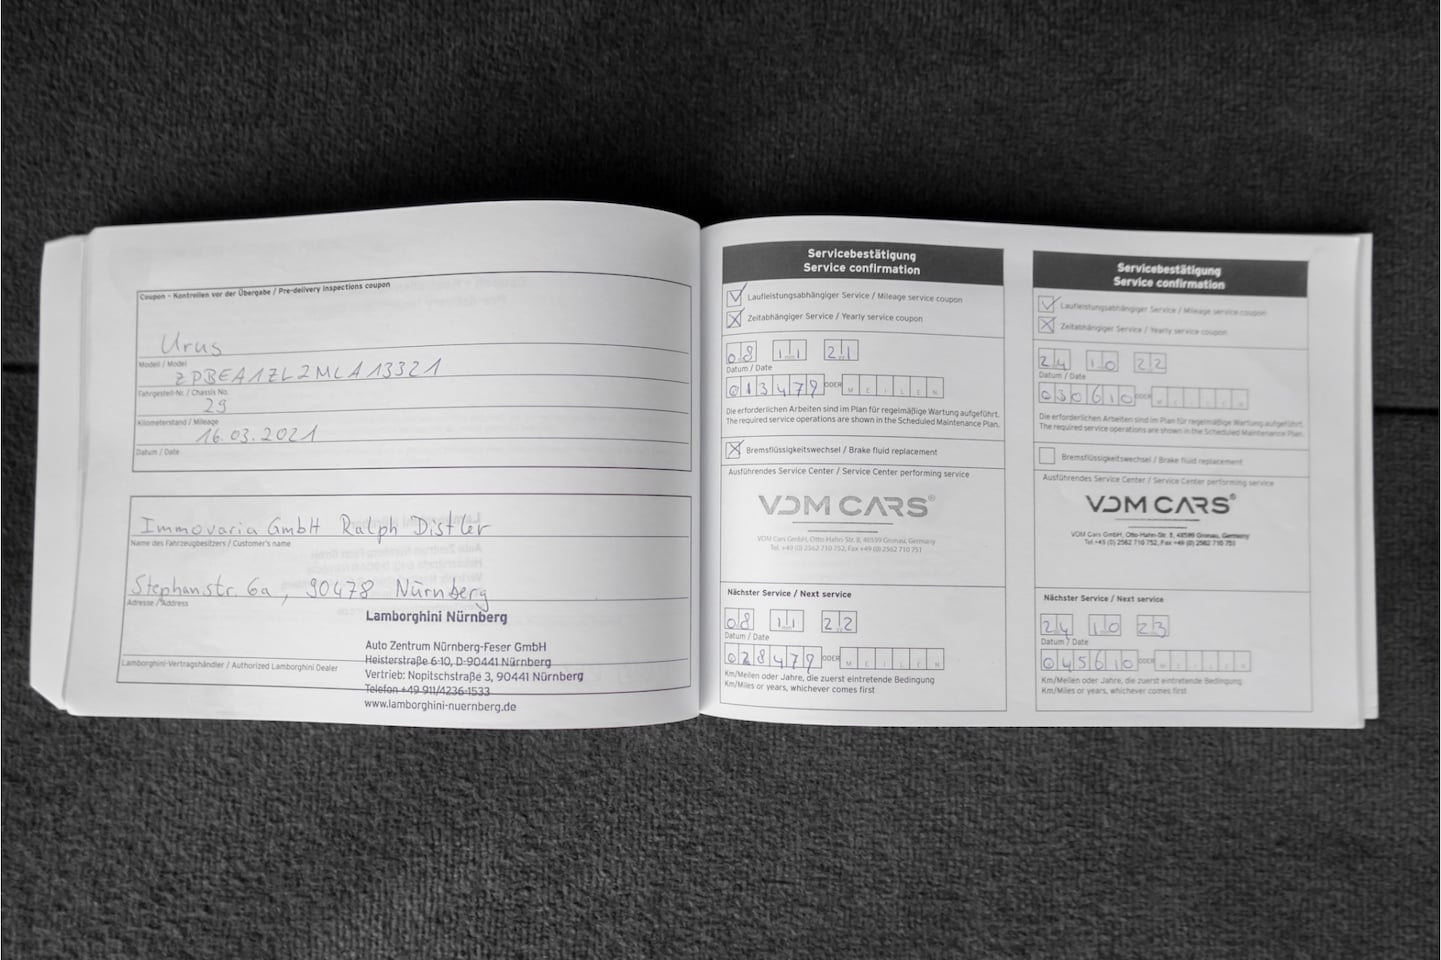 Coupon - Kontrollen vor der Übergabe / Pre-delivery inspections coupon
Urus
Modell / Model
ZPBEA1ZL2MLA13321
Fahrgestell-Nr. / Chassis No.
29
Kilometerstand / Mileage
16.03.2021
Datum / Date
Immovaria GmbH Ralph Distler
Name des Fahrzeugbesitzers / Customer's name
Stephanstr. 6a, 90478 Nürnberg
Adresse / Address
Lamborghini Nürnberg
Auto Zentrum Nürnberg-Feser GmbH
Heisterstraße 6-10, D-90441 Nürnberg
Lamborghini-Vertragshändler / Authorized Lamborghini Dealer
Vertrieb: Nopitschstraße 3, 90441 Nürnberg
Telefon +49 911/4236-1533
www.lamborghini-nuernberg.de
Servicebestätigung
Service confirmation
Laufleistungsabhängiger Service / Mileage service coupon
Zeitabhängiger Service / Yearly service coupon
08 11 21
Datum / Date
013479 ODER MEILEN
Die erforderlichen Arbeiten sind im Plan für regelmäßige Wartung aufgeführt.
The required service operations are shown in the Scheduled Maintenance Plan.
Bremsflüssigkeitswechsel / Brake fluid replacement
Ausführendes Service Center / Service Center performing service
VDM CARS®
VDM Cars GmbH, Otto-Hahn-Str. 8, 48599 Gronau, Germany
Tel. +49 (0) 2562 710 752, Fax +49 (0) 2562 710 751
Nächster Service / Next service
08 11 22
Datum / Date
028479 ODER MEILEN
Km/Meilen oder Jahre, die zuerst eintretende Bedingung
Km/Miles or years, whichever comes first
Servicebestätigung
Service confirmation
Laufleistungsabhängiger Service / Mileage service coupon
Zeitabhängiger Service / Yearly service coupon
24 10 22
Datum / Date
030610 ODER MEILEN
Die erforderlichen Arbeiten sind im Plan für regelmäßige Wartung aufgeführt.
The required service operations are shown in the Scheduled Maintenance Plan.
Bremsflüssigkeitswechsel / Brake fluid replacement
Ausführendes Service Center / Service Center performing service
VDM CARS®
VDM Cars GmbH, Otto-Hahn-Str. 8, 48599 Gronau, Germany
Tel. +49 (0) 2562 710 752, Fax +49 (0) 2562 710 751
Nächster Service / Next service
24 10 23
Datum / Date
045610 ODER MEILEN
Km/Meilen oder Jahre, die zuerst eintretende Bedingung
Km/Miles or years, whichever comes first